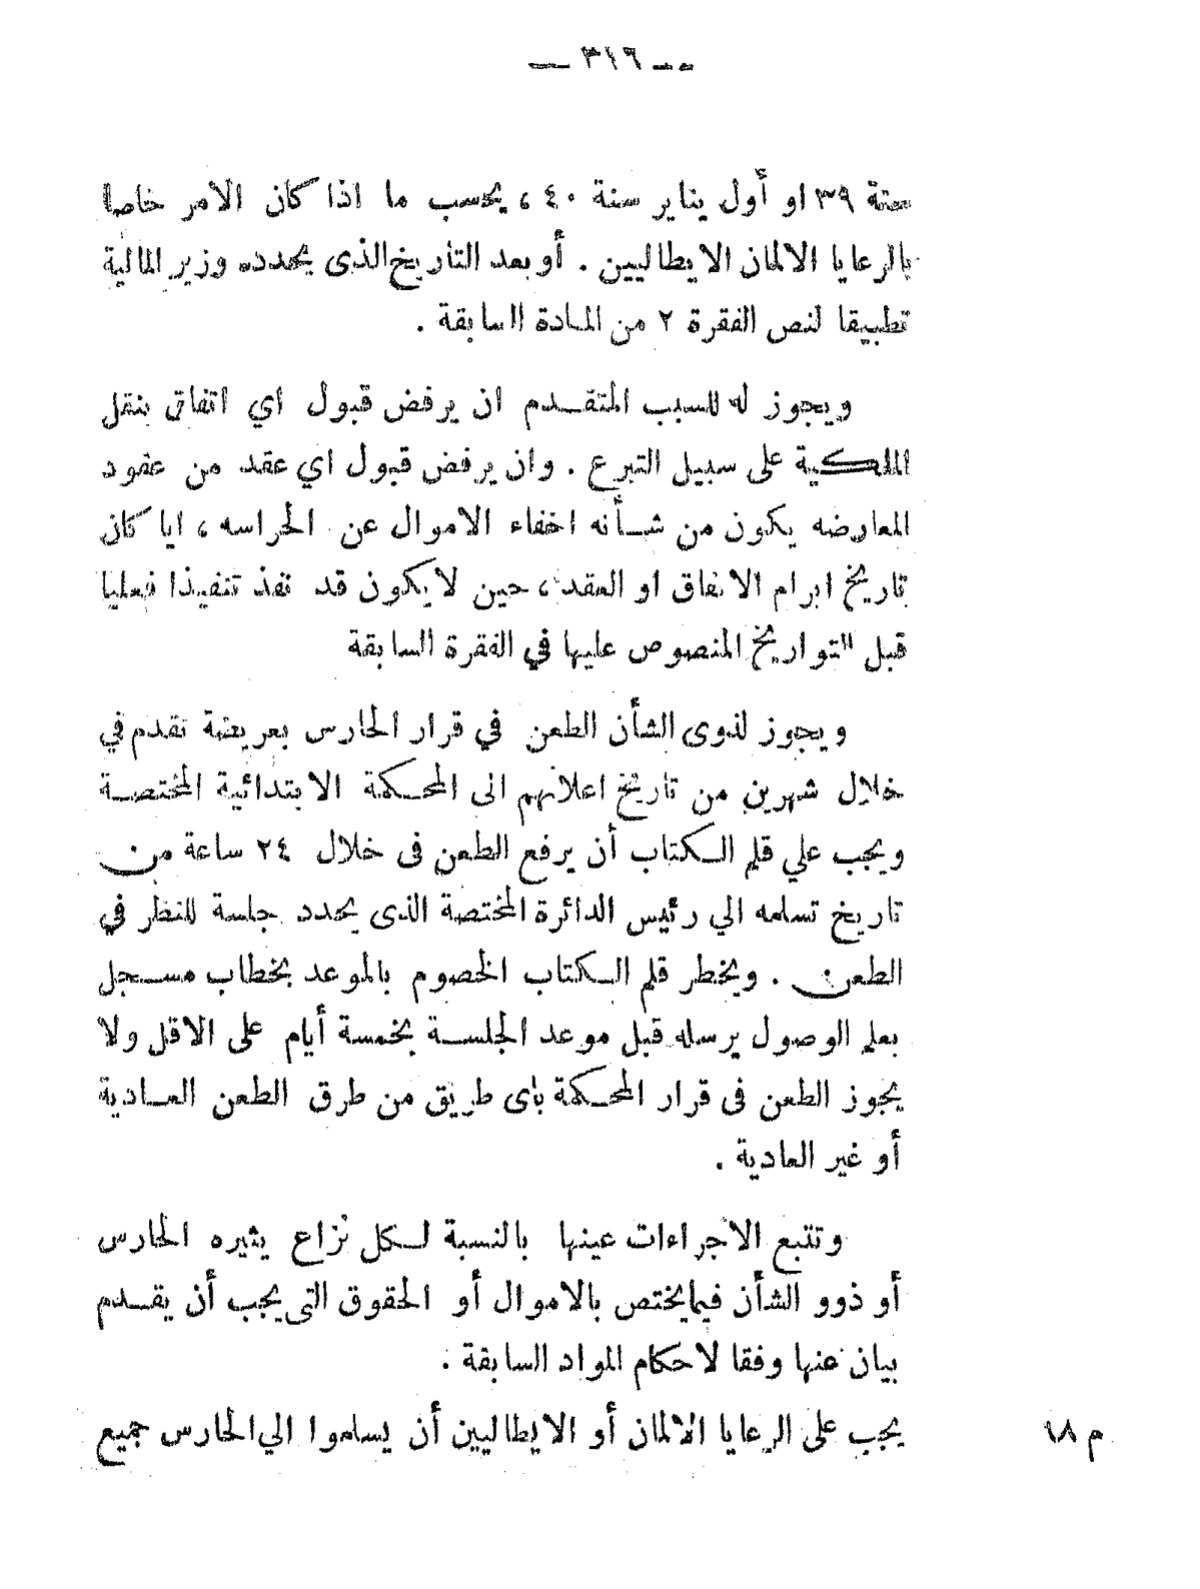 — ٣١٦ —
سنة ٣٩ او أول يناير سنة ٤٠ ، بحسب ما اذا كان الامر خاصا
بالرعايا الالمان الايطاليين . أو بعد التاريخ الذى يحدده وزير المالية
تطبيقا لنص الفقرة ٢ من المادة السابقة .
ويجوز له للسبب المتقدم ان يرفض قبول اي اتفاق بنقل
الملكية على سبيل التبرع . وان يرفض قبول اي عقد من عقود
المعارضه يكون من شأنه اخفاء الاموال عن الحراسه ، ايا كان
تاريخ ابرام الاتفاق او العقد ، حين لا يكون قد نفذ تنفيذا فعليا
قبل التواريخ المنصوص عليها في الفقرة السابقة
ويجوز لذوى الشأن الطعن في قرار الحارس بعريضة تقدم في
خلال شهرين من تاريخ اعلانهم الى المحكمة الابتدائية المختصة
ويجب علي قلم الكتاب أن يرفع الطعن فى خلال ٢٤ ساعة من
تاريخ تسلمه الي رئيس الدائرة المختصة الذى يحدد جلسة للنظر في
الطعن . ويخطر قلم الكتاب الخصوم بالموعد بخطاب مسجل
بعلم الوصول يرسله قبل موعد الجلسة بخمسة أيام على الاقل ولا
يجوز الطعن فى قرار المحكمة بأى طريق من طرق الطعن العادية
أو غير العادية .
وتتبع الاجراءات عينها بالنسبة لكل نزاع يثيره الحارس
أو ذوو الشأن فيما يختص بالاموال أو الحقوق التى يجب أن يقدم
بيان عنها وفقا لاحكام المواد السابقة .
م ١٨ يجب على الرعايا الالمان أو الايطاليين أن يسلموا الي الحارس جميع